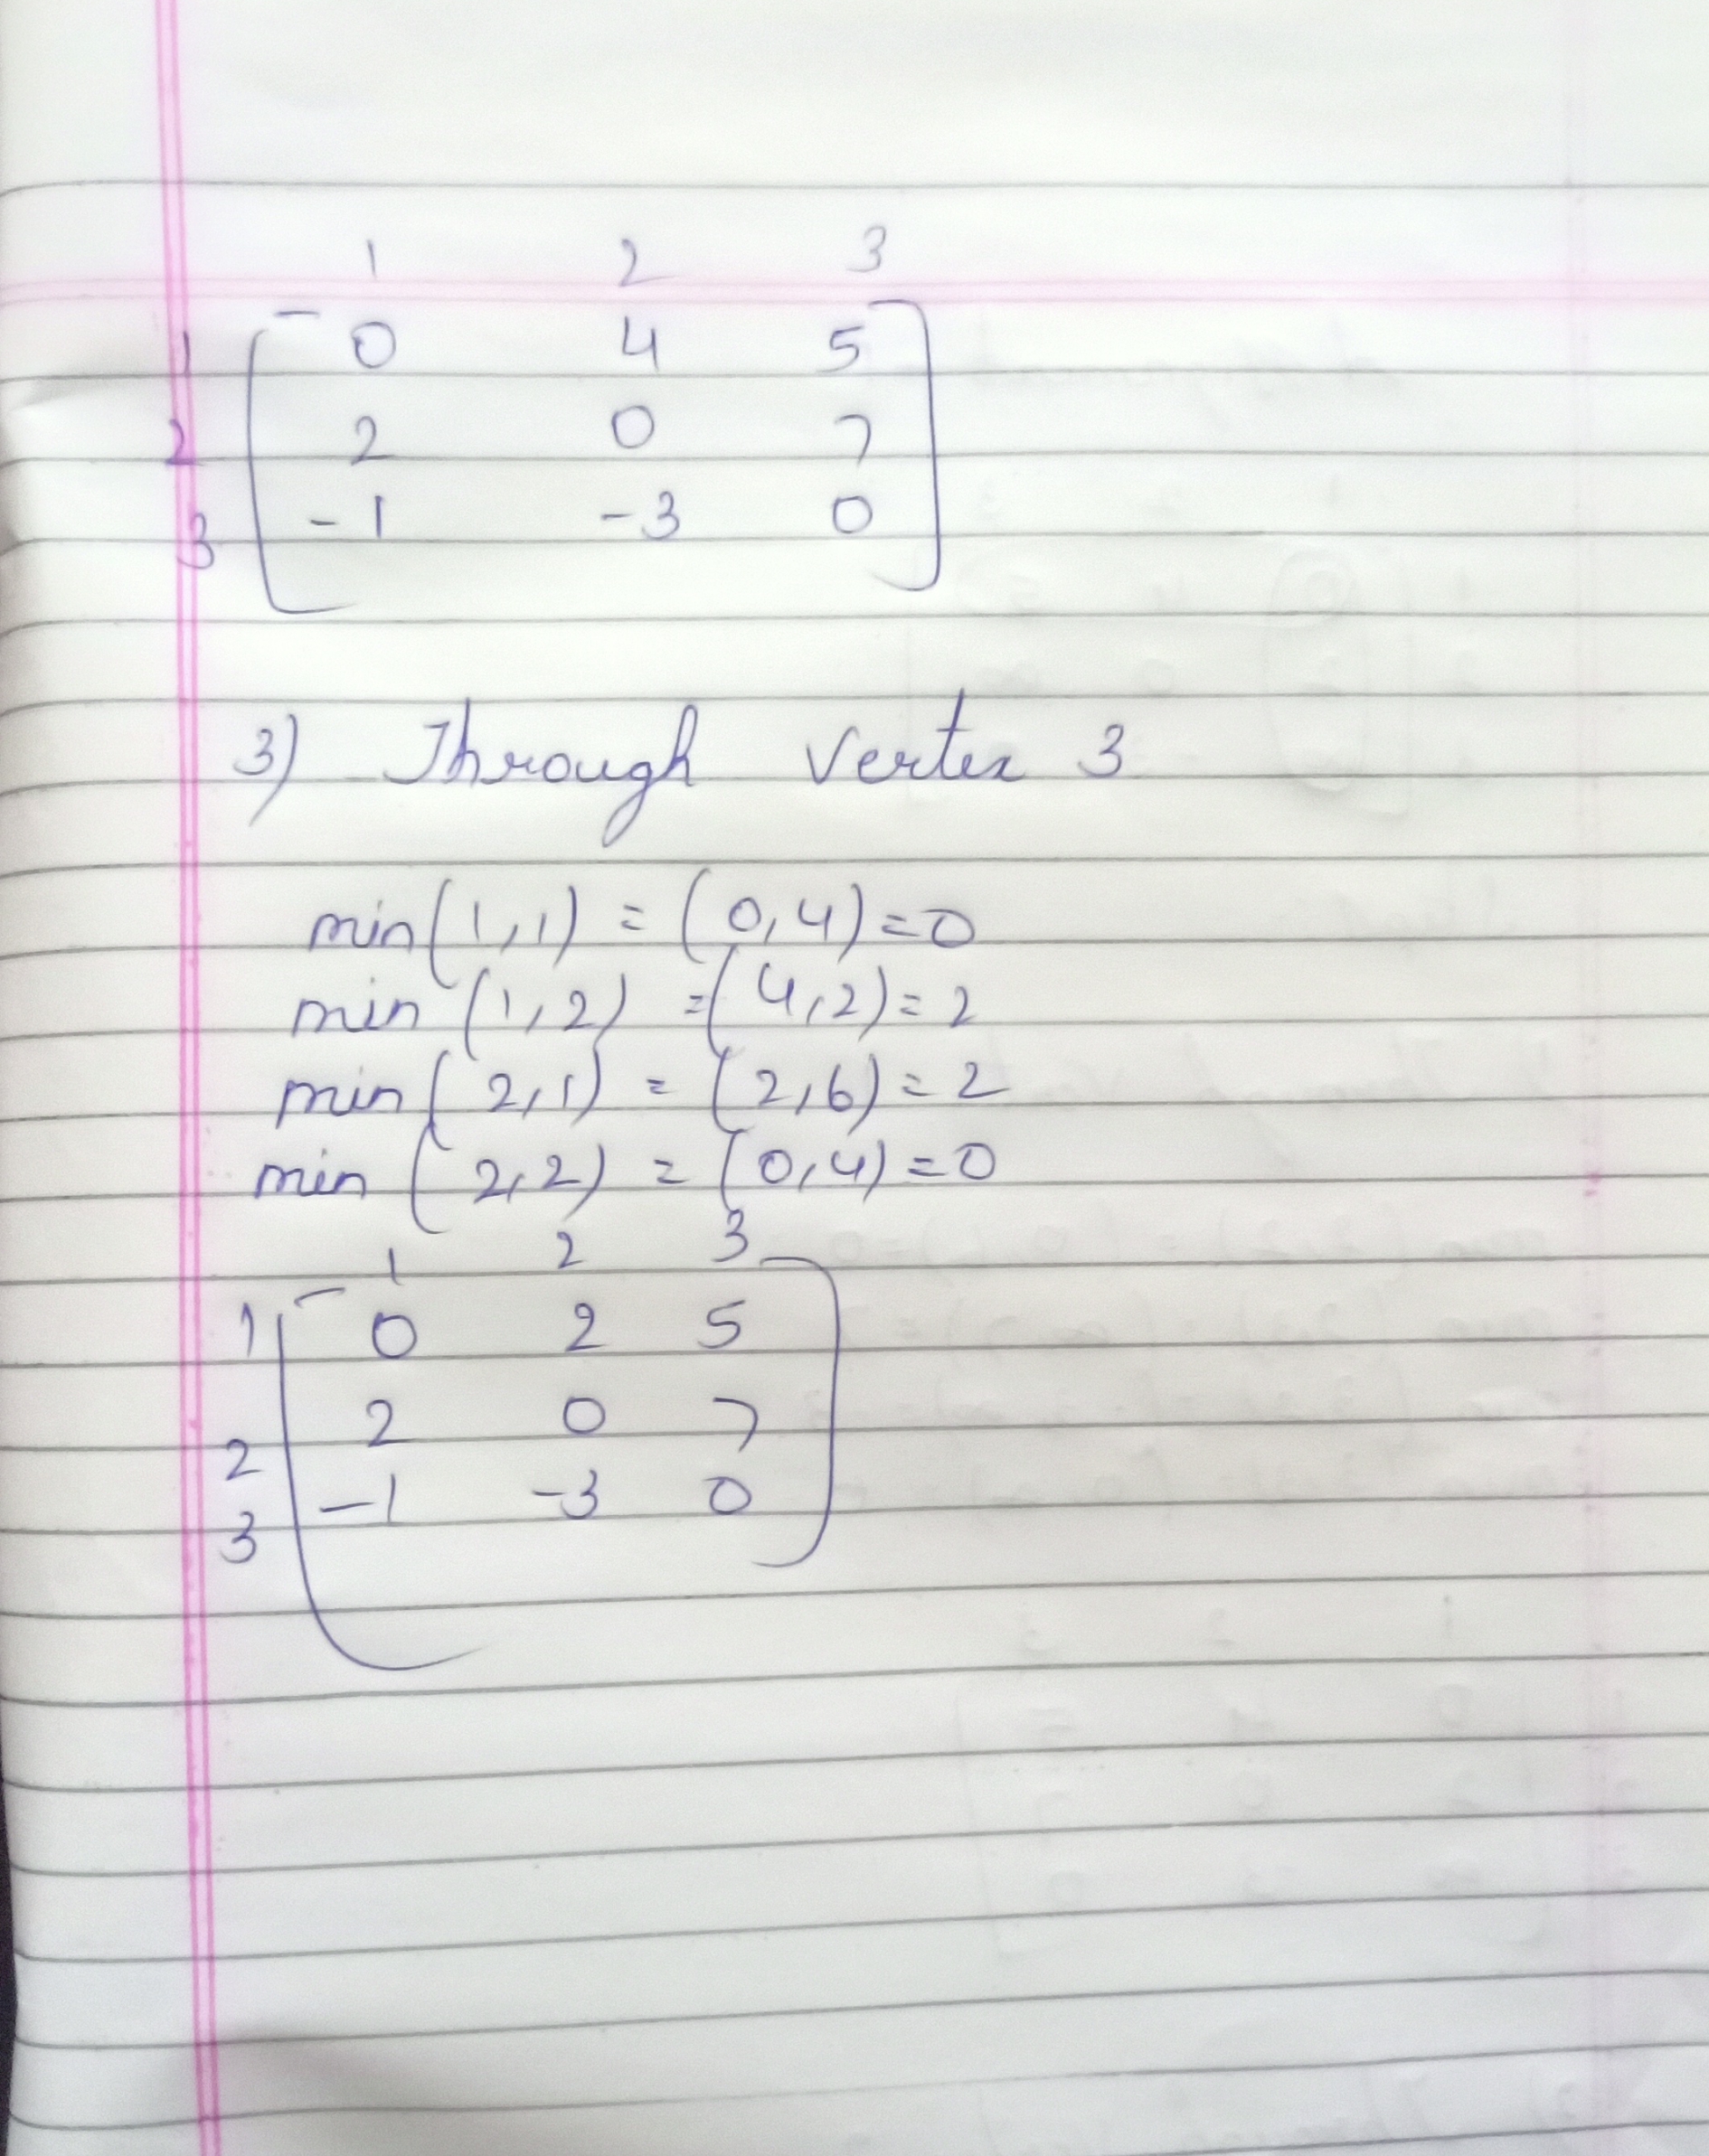 1 2 3
1 0 4 5
2 2 0 7
3 -1 -3 0
3) Through Vertex 3
min(1,1) = (0,4)=0
min (1,2) =(4,2)=2
min(2,1) = (2,6)=2
min (2,2) = (0,4)=0
1 2 3
1 0 2 5
2 2 0 7
3 -1 -3 0